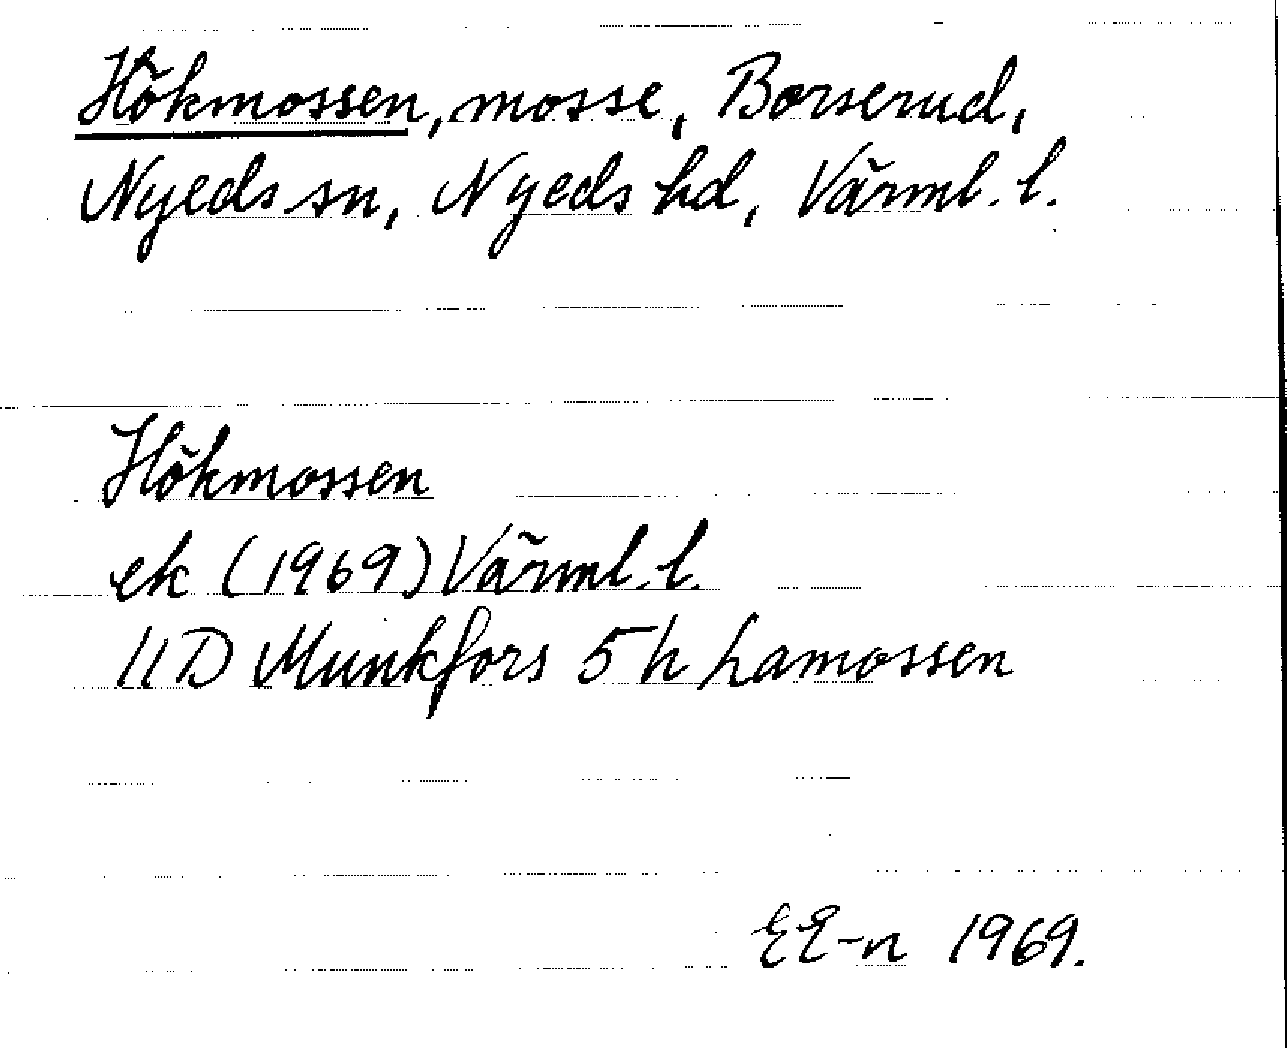 Hökmossen, mosse, Borserud,
Nyeds sn, Nyeds hd, Värml. l.
Hökmossen
ek (1969) Värml. l.
11D Munkfors 5h Lamossen
EE-n 1969.